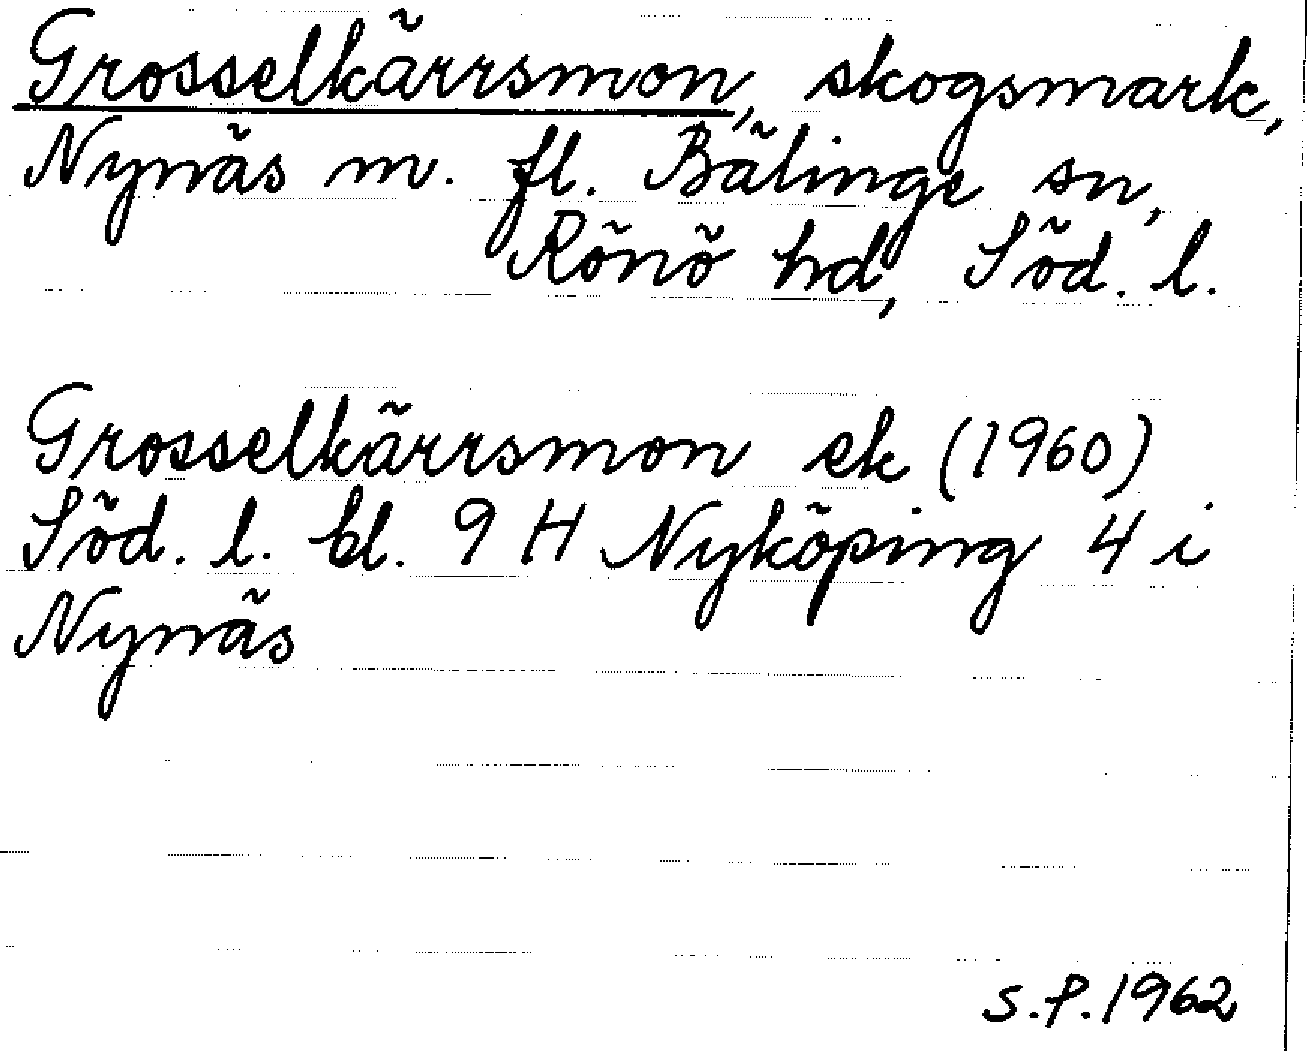 Grosselkärrsmon, skogsmark,
Nynäs m. fl. Bälinge sn,
Rönö hd, Söd. l.
Grosselkärrsmon ek (1960)
Söd. l. bl. 9 H Nyköping 4 i
Nynäs
S.P. 1962